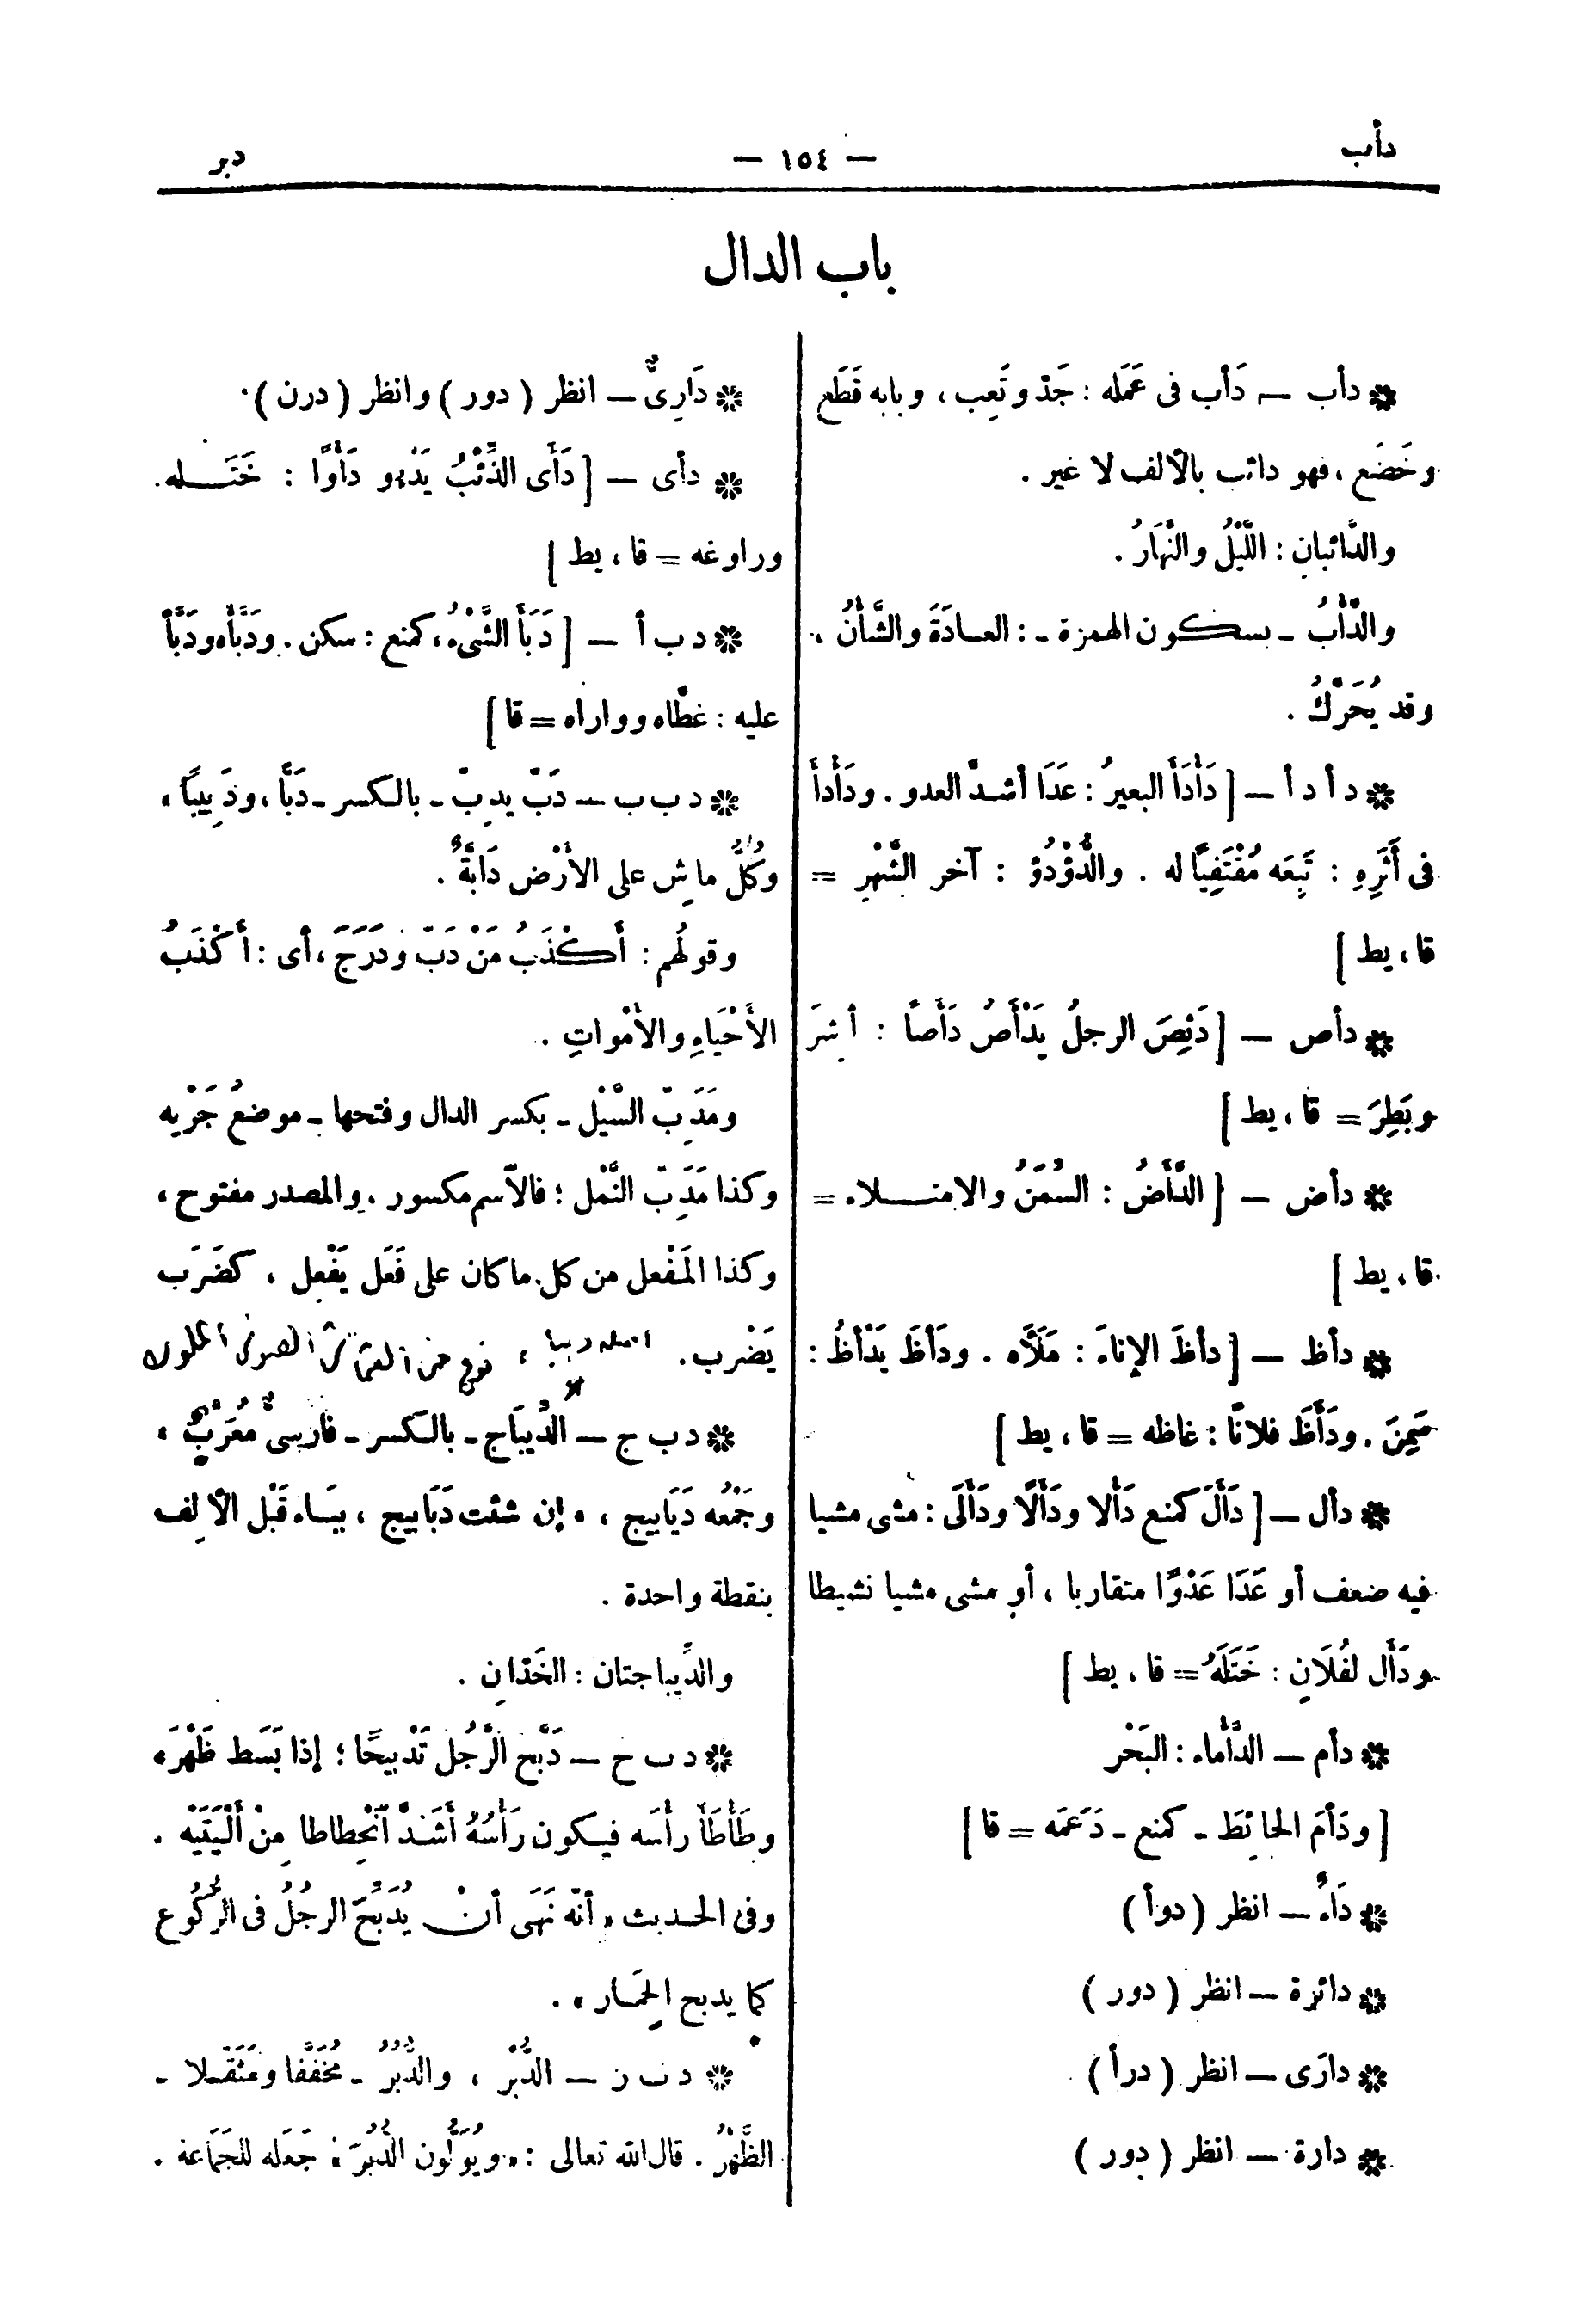 دأب
— ١٥٤ —
دبر
باب الدال
❋ دأب — دَأب فى عَمَله : جَدّ وتَعِب ، وبابه قَطَع
وخَضَع ، فهو دائب بالألف لا غير .
والدَّائبانِ : اللَّيْلُ والنَّهارُ .
والدَّأْبُ ـ بسكون الهمزة ـ : العادَةَ والشَّأْنُ ،
وقد يُحَرّكُ .
❋ د أ د أ — [ دَأْدَأَ البعيرُ : عَدَا أشدَّ العدو . ودَأْدأَ
فى أَثَرِهِ : تَبِعَه مُقْتَفِيًا له . والدُّؤْدُؤ : آخر الشَّهْرِ =
قا ، يط ]
❋ دأص — [ دَئِصَ الرجلُ يَدْأَصُ دَأَصًا : أشِرَ
وبَطِرَ = قا ، يط ]
❋ دأض — [ الدَّأَضُ : السُمَنُ والامتـلاء =
قا ، يط ]
❋ دأظ — [ دأظَ الإناءَ : مَلَأَه . ودَأظَ يَدْأظُ :
سَمِنَ . ودَأَظَ فلانًا : غاظه = قا ، يط ]
❋ دأل — [ دَأَلَ كمنع دَأْلا ودَأَلًا ودَأَلَى : مشى مشيا
فيه ضعف أو عَدَا عَدْوًا متقاربا ، أو مشى مشيا نشيطا
ودَأَل لفُلَانٍ : خَتَلَهُ = قا ، يط ]
❋ دأم — الدَّأْماء : البَحْر
[ ودَأمَ الحائِطَ ـ كمنع ـ دَعَمَه = قا ]
❋ دَاءٌ — انظر ( دوأ )
❋ دائرة — انظر ( دور )
❋ دارَى — انظر ( درأ )
❋ دارة — انظر ( دور )
❋ دَارِىٌّ — انظر ( دور ) وانظر ( درن ) .
❋ دأى — [ دَأَى الذِّئْبُ يَدْءو دَأْوًا : خَتَـله
وراوغه = قا ، يط ]
❋ د ب أ — [ دَبَأَ الشَّىْءُ ، كمنع : سكن . ودَبَّأَه ودَبَّأَ
عليه : غطَّاه وواراه = قا ]
❋ د ب ب — دَبّ يدِبّ ـ بالكسر ـ دَبًّا ، ودَبِيبًا ،
وكُلُّ ماشٍ على الأرْض دَابَّةٌ .
وقولُهم : أَكْذَبُ مَنْ دَبّ ودَرَجَ ، أى : أَكْذَبُ
الأَحْيَاءِ والأمْواتِ .
ومَدَِبّ السَّيْل ـ بكسر الدال وفتحها ـ موضعُ جَرْيه
وكذا مَدَِبّ النَّمْل ؛ فالاسم مكسور . والمصدر مفتوح ،
وكذا المَفْعل من كل ما كان على فَعَل يَفْعِل ، كضَرَب
يَضْرب .
❋ د ب ج — الدِّيبَاج ـ بالكسر ـ فارسىٌّ مُعَرَّبٌ ،
وجَمْعُه دَيَابيج ، وإن شئت دَبَابيج ، بِبَاء قَبْل الألِف
بنقطة واحدة .
والدِّيباجتان : الخَدّانِ .
❋ د ب ح — دَبَّح الرَّجُل تَدْبيحًا ؛ إذا بَسَط ظَهْرَه
وطَأْطَأَ رأْسَه فيكون رَأْسُهُ أَشَدَّ ٱنْحِطاطا مِنْ أَلْيَتَيْه .
وفى الحديث « أنّه نَهَى أنْ يُدَبِّحَ الرجُلُ فى الرُّكُوع
كما يدبح الحِمَـار » .
❋ د ب ر — الدُّبْر ، والدُّبُرُ ـ مُخَفَّفا ومُثَقَّـلا ـ
الظَّهْرُ . قال الله تعالى : « ويُوَلُّون الدُّبُرَ » جَعَله للجَمَاعة .